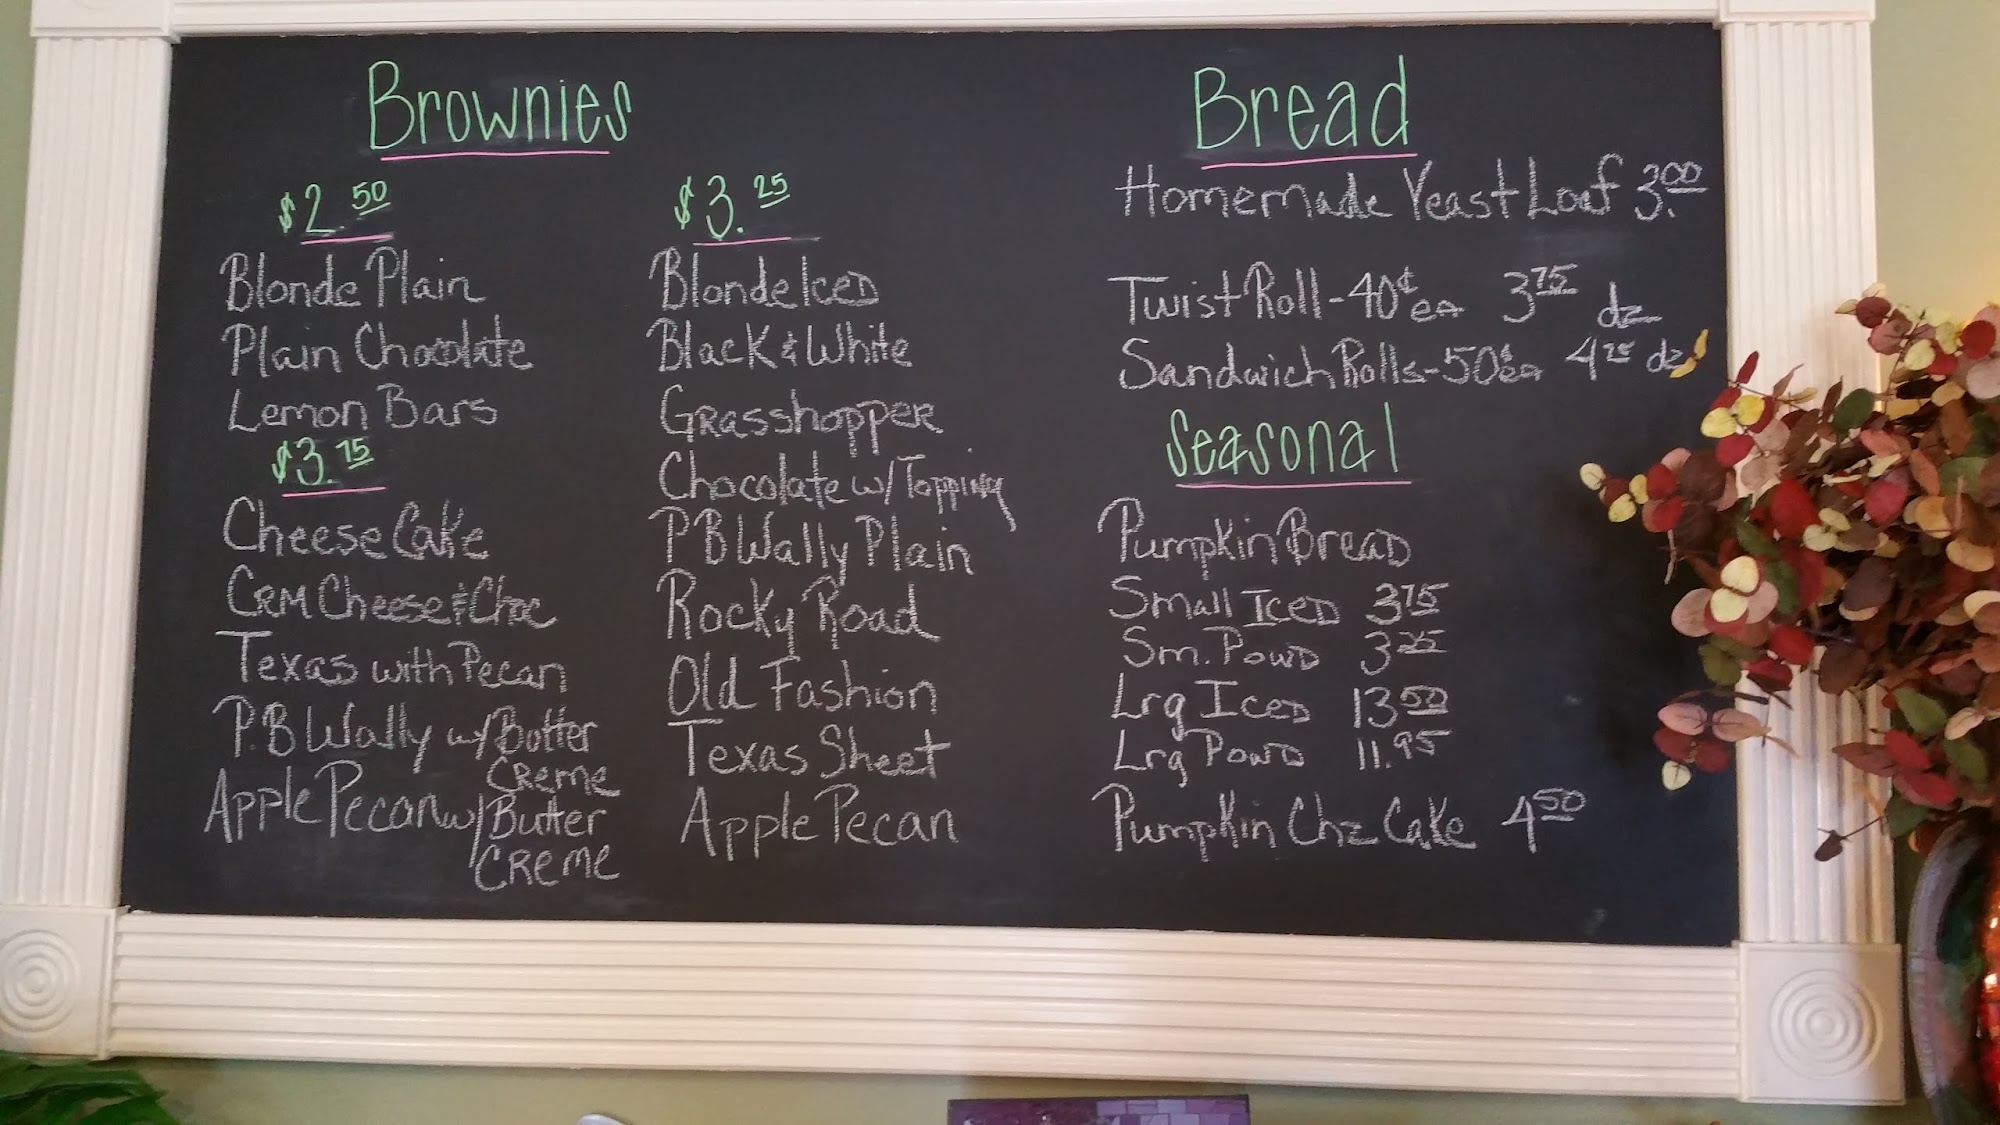 Brownies
$2.50
Blonde Plain
Plain Chocolate
Lemon Bars
$3.75
Cheese Cake
CRM Cheese & Choc
Texas with Pecan
P.B Wally w/ Butter
CREME
Apple Pecan w/ Butter
CREME
$3.25
Blonde Iced
Black & White
Grasshopper
Chocolate w/ Topping
PB Wally Plain
Rocky Road
Old Fashion
Texas Sheet
Apple Pecan
Bread
Homemade Yeast Loaf 3.00
Twist Roll - 40¢ ea 3 75 dz
Sandwich Rolls - 50¢ ea 4 25 dz
Seasonal
Pumpkin Bread
Small Iced 3 75
Sm. Powd 3 25
Lrg Iced 13 50
Lrg Powd 11.95
Pumpkin Chz Cake 4 50